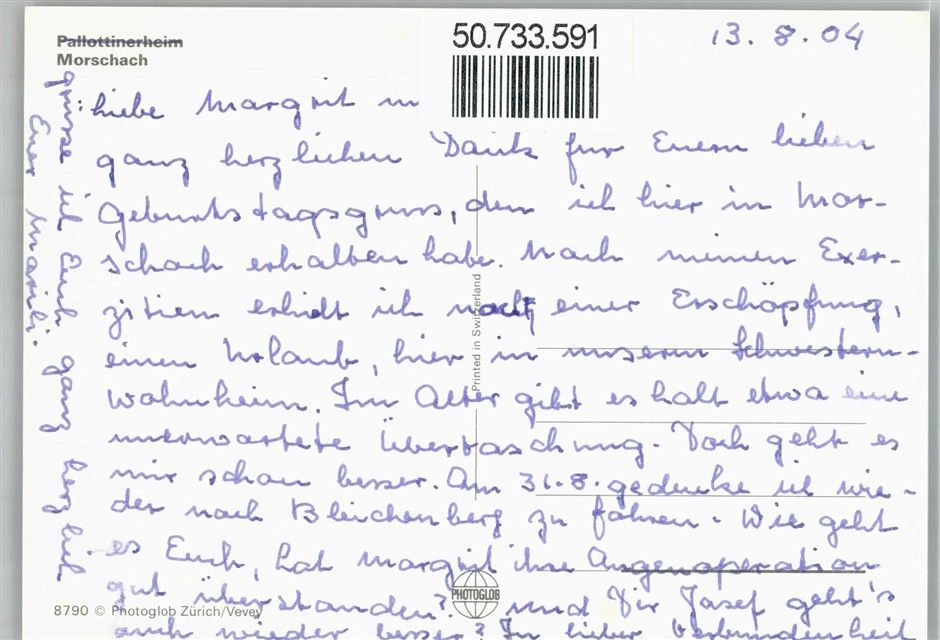 Pallottinerheim
Morschach
50.733.591
13.8.04
Liebe Margrit
ganz herzlichen Dank für Euern lieben
Geburtstagsgruss, den ich hier in Mor-
schach erhalten habe. Nach meinen Exer-
zitien erhielt ich nach einer Erschöpfung,
einen Urlaub, hier in unserm Schwestern-
wohnheim. Im Alter gibt es halt etwa eine
unerwartete Überraschung. Doch geht es
mir schon besser. Am 31.8. gedenke ich wie-
der nach Bleichenberg zu fahren. Wie geht
es Euch, hat Margrit ihre Augenoperation
gut überstanden? Und Dir Josef geht's
auch wieder besser? In lieber Verbundenheit
grüsse ich Euch ganz herzlich
Euer
Printed in Switzerland
PHOTOGLOB
8790 © Photoglob Zürich/Vevey